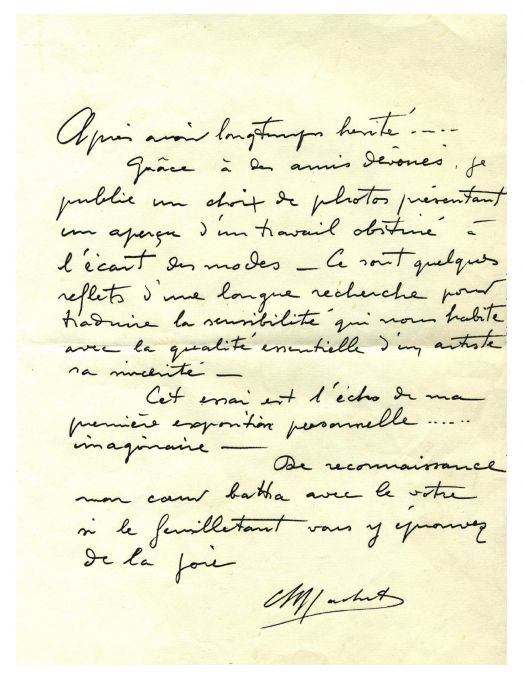 Après avoir longtemps hésité .....
Grâce à des amis dévoués, je
publie un choix de photos présentant
un aperçu d'un travail obstiné à
l'écart des modes — Ce sont quelques
reflets d'une longue recherche pour
traduire la sensibilité qui nous habite
avec la qualité essentielle d'un artiste
sa sincérité —
Cet essai est l'écho de ma
première exposition personnelle .....
imaginaire —
De reconnaissance
mon cœur battra avec le votre
si le feuilletant vous y éprouvez
de la joie